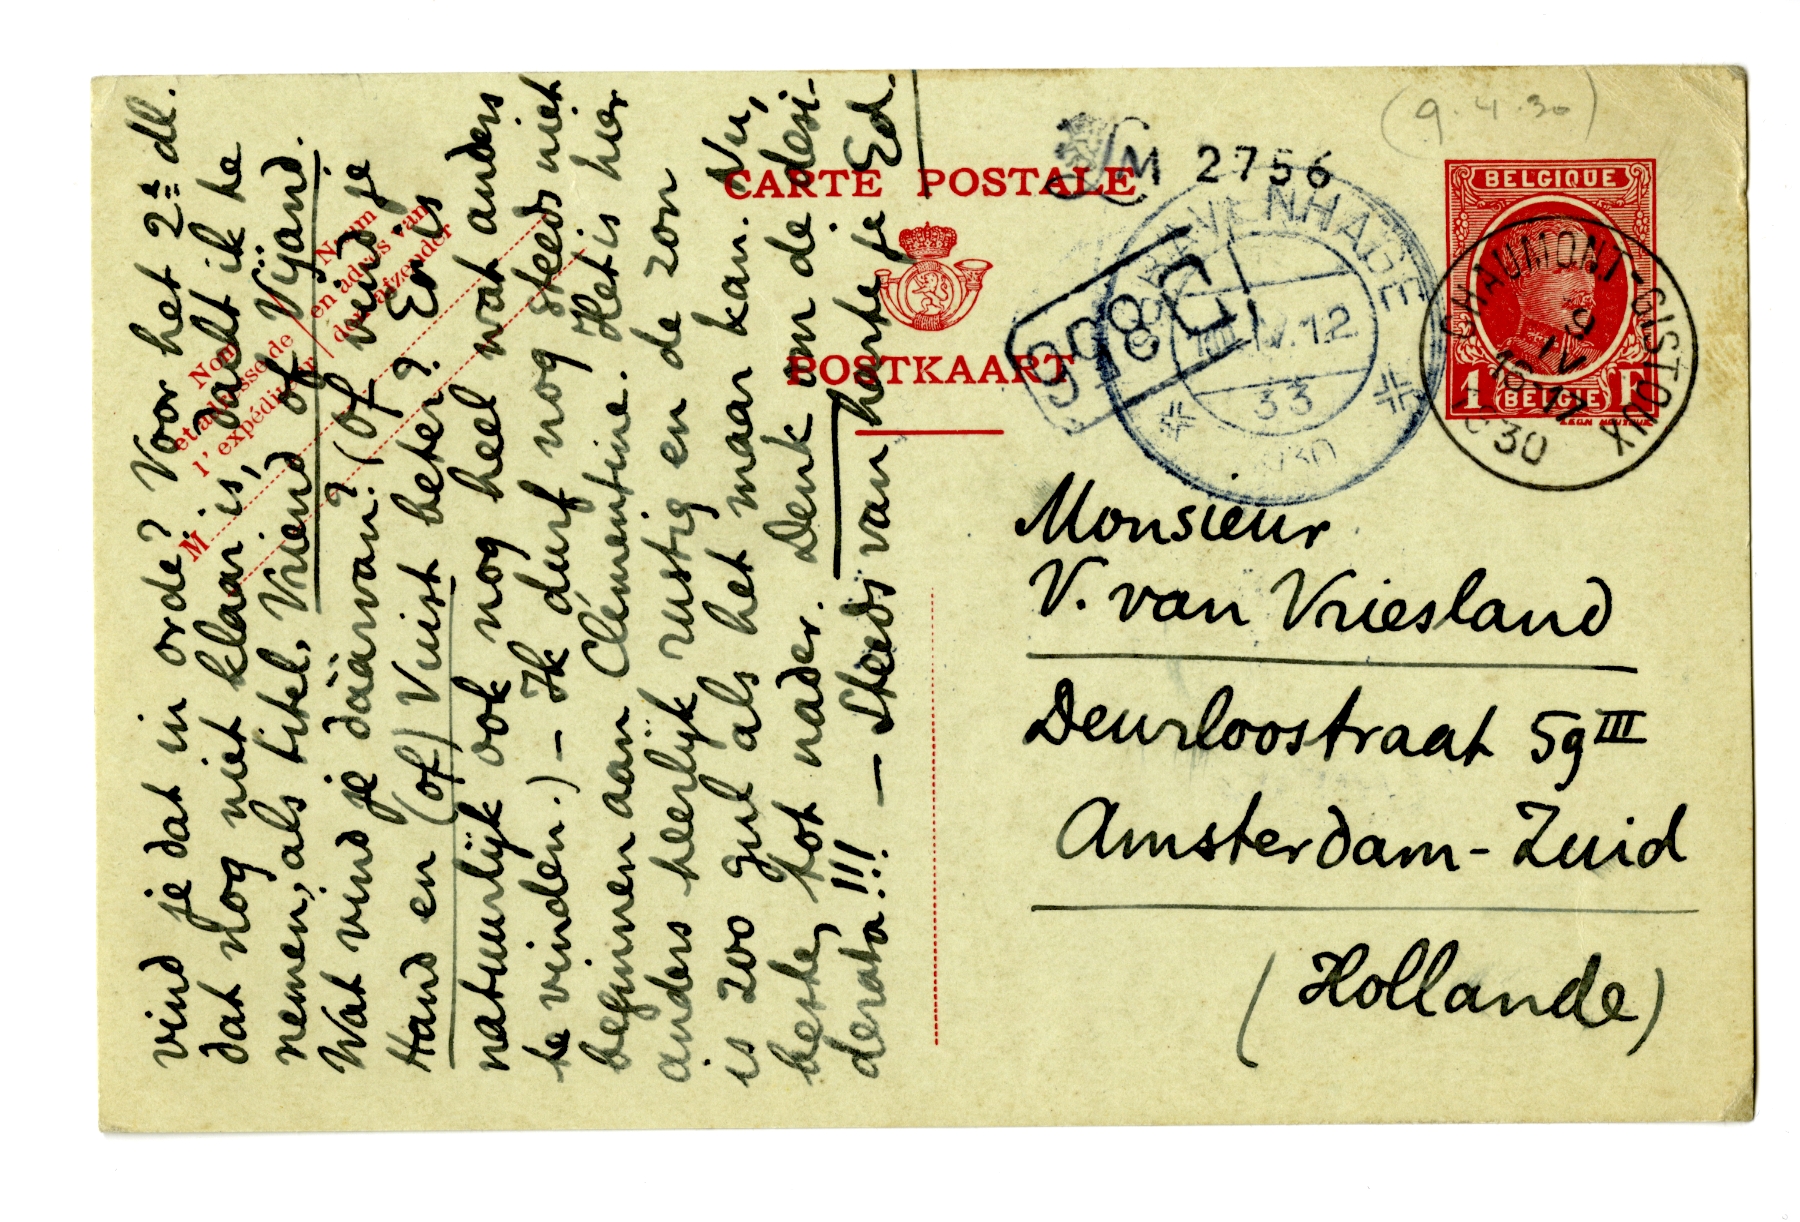 vind je dat in orde? Voor het 2e dl.
dat nog niet klaar is, dacht ik te
nemen, als titel, Vriend of Vijand.
Wat vind je dáárvan? (Of vind je
Hand en (of) Vuist beter? Er is
natuurlijk ook nog heel wat anders
te vinden.) – Ik durf nog steeds niet
beginnen aan Clémentine. Het is hier
anders heerlijk rustig en de zon
is zoo gul als het maar kan. Nu,
beste, tot nader. Denk om de desi-
derata!!! – Steeds van harte je Ed.
Nom et adresse de l'expéditeur
Naam en adres van den afzender
M
CARTE POSTALE
POSTKAART
M 2756
(9.4.30)
BELGIQUE
1 F
BELGIË
CHAUMONT-GISTOUX
9 IV
16-17
1930
'S GRAVENHAGE
IV.12
33
1930
Monsieur
V. van Vriesland
Deurloostraat 59 III
Amsterdam-Zuid
(Hollande)